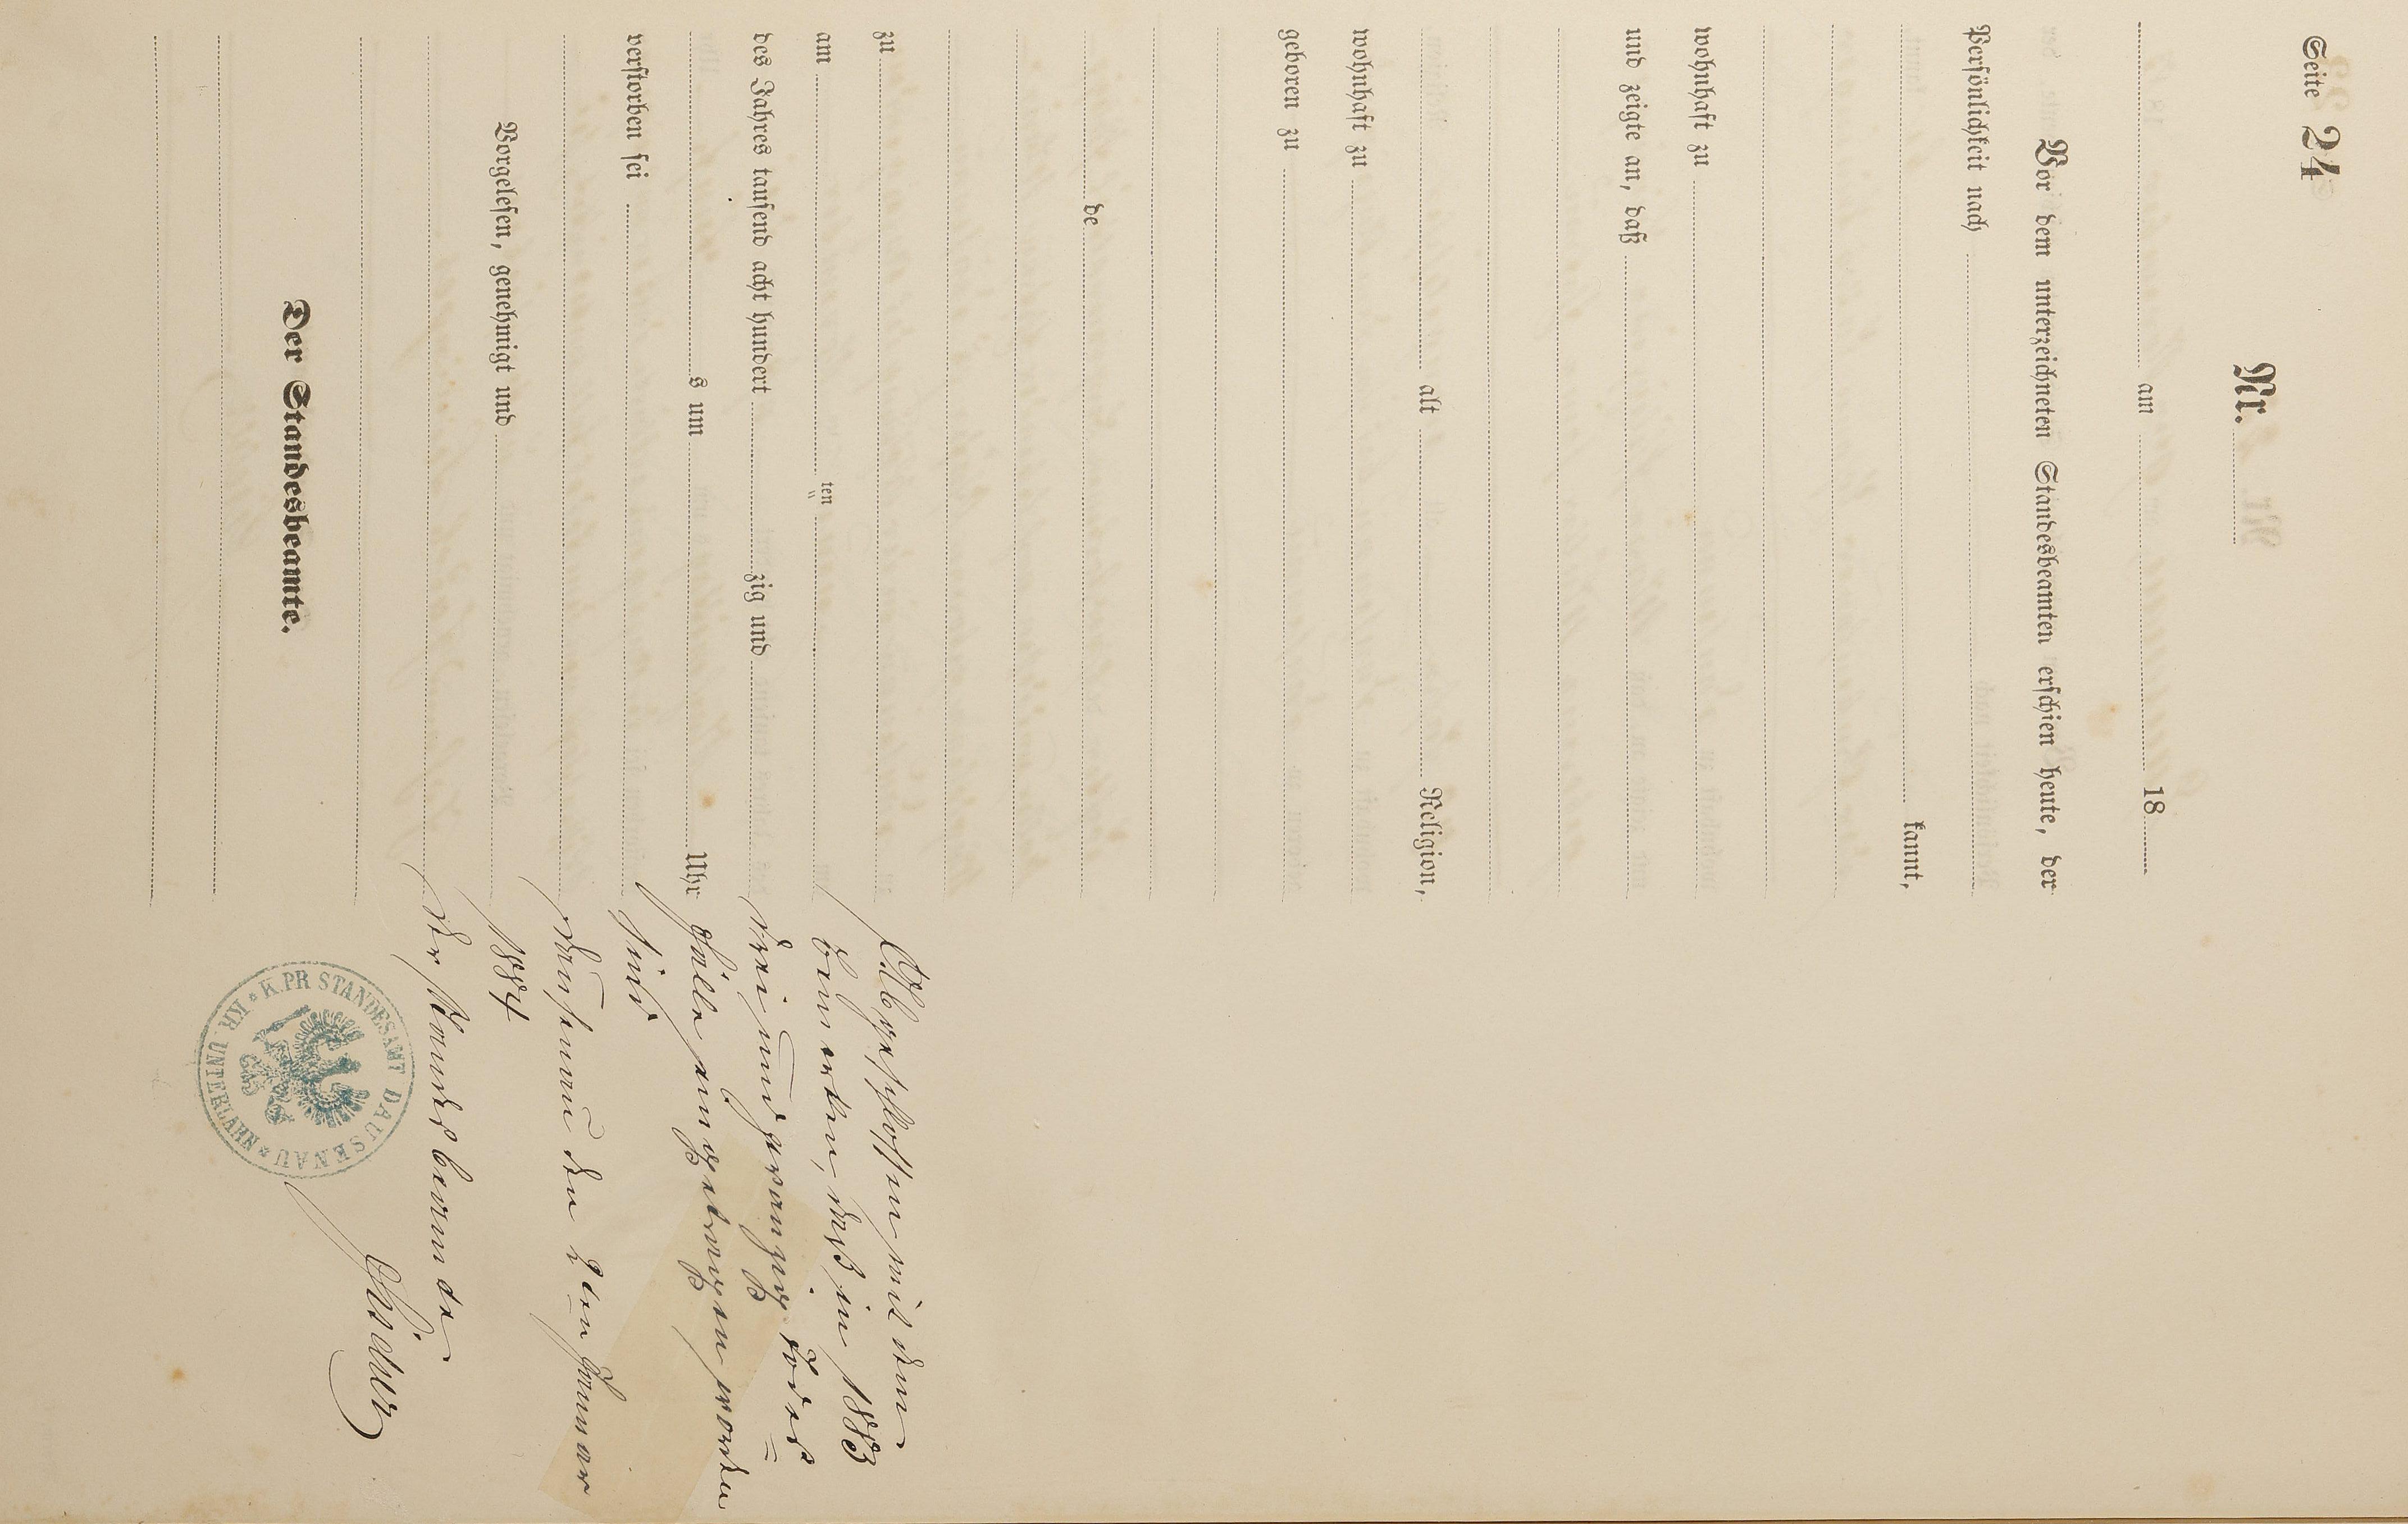 Seite 24
Nr.
am 18
Vor dem unterzeichneten Standesbeamten erschien heute, der
Persönlichkeit nach
kannt,
wohnhaft zu
und zeigte an, daß
alt Religion,
wohnhaft zu
geboren zu
de
zu
am ten
des Jahres tausend acht hundert zig und
s um Uhr
verstorben sei
Vorgelesen, genehmigt und
Der Standesbeamte.
Abgeschlossen mit dem
Bemerken, daß im 1883
drei und zwanzig Todes=
fälle eingetragen worden
sind
Dausenau den 2ten Januar
1884
Der Standesbeamte
K. PR STANDESAMT DAUSENAU * KR. UNTERLAHN *